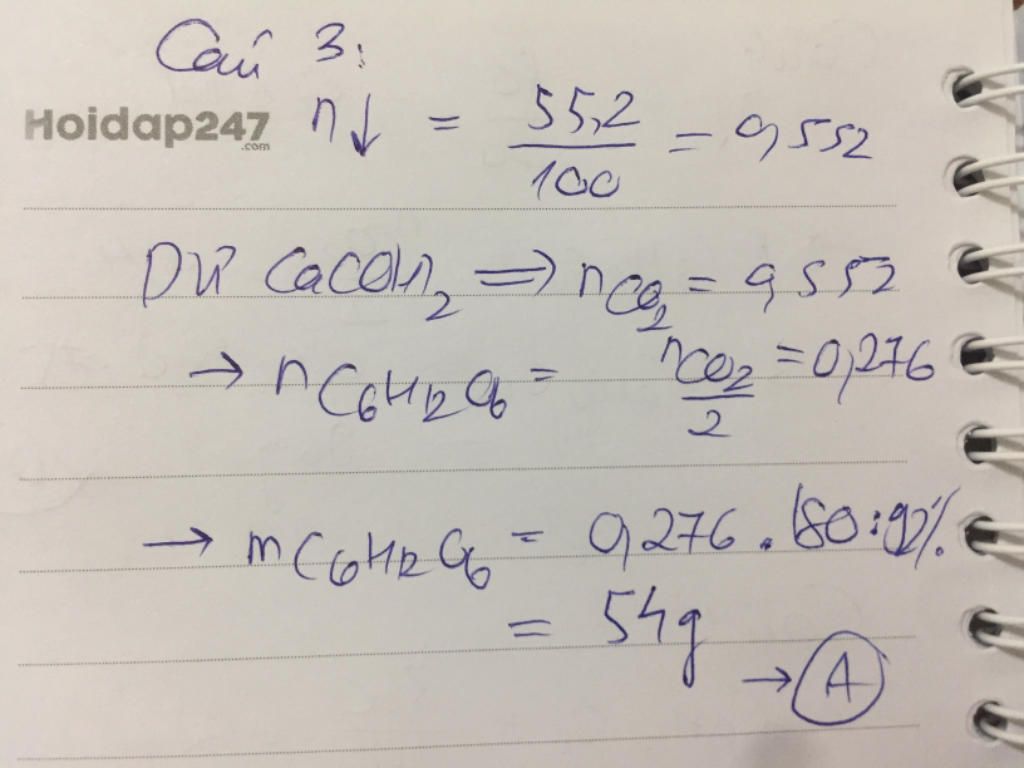 Câu 3:
Hoidap247.com n↓ = 55,2/100 = 0,552
Dư Ca(OH)2 => nCO2 = 0,552
→ nC6H12O6 = nCO2/2 = 0,276
→ mC6H12O6 = 0,276 . 180 : 92%
= 54g
→ A